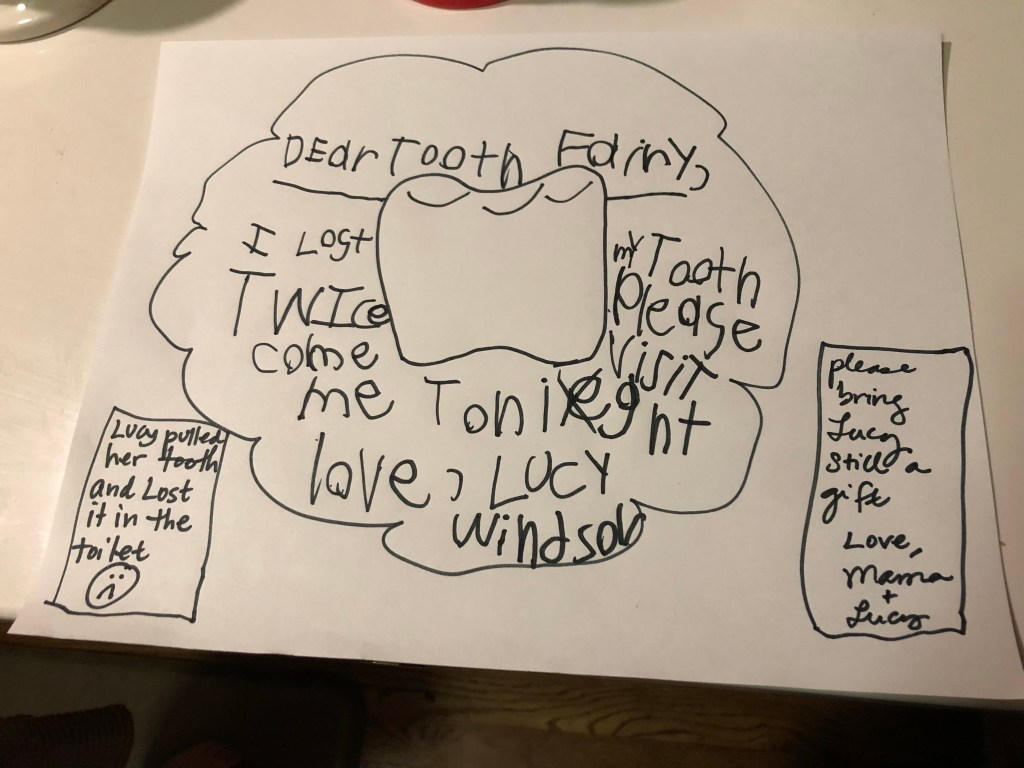 DEar Tooth Fainy,
I Lost my Tooth
TWIce please
come visit
me Tonight
love, LUCY
Windsor
Lucy pulled
her tooth
and Lost
it in the
toilet
please
bring
Lucy
still a
gift
Love,
Mama
+
Lucy